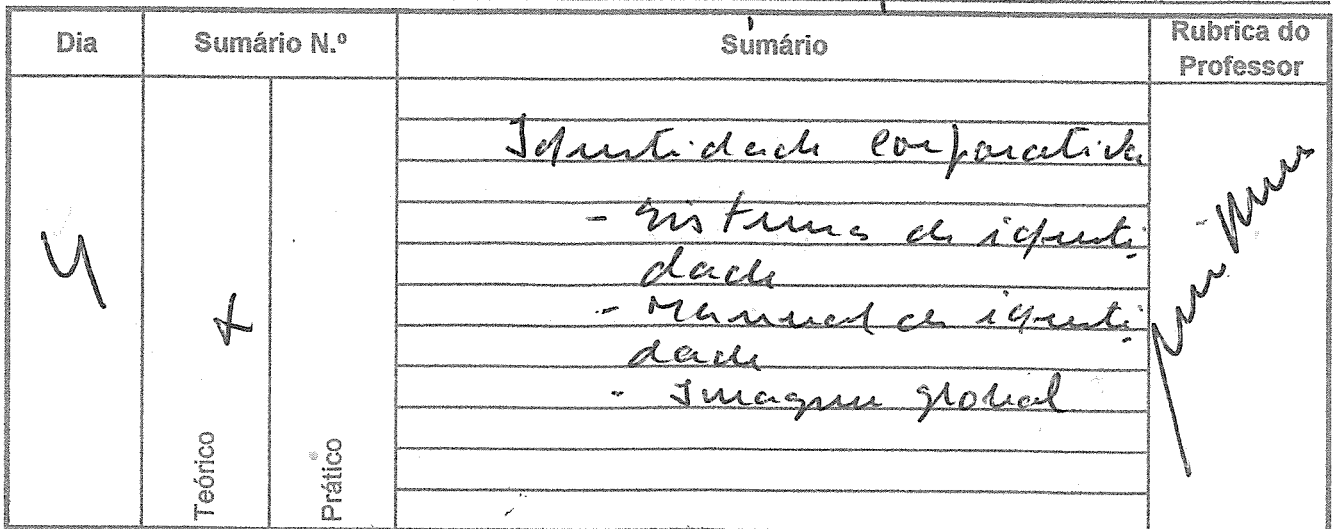 Dia
Sumário N.º
Sumário
Rubrica do
Professor
4
x
Teórico
Prático
Identidade corporativa
- Sistema de identi
dade
- Manual de identi
dade
- Imagem global